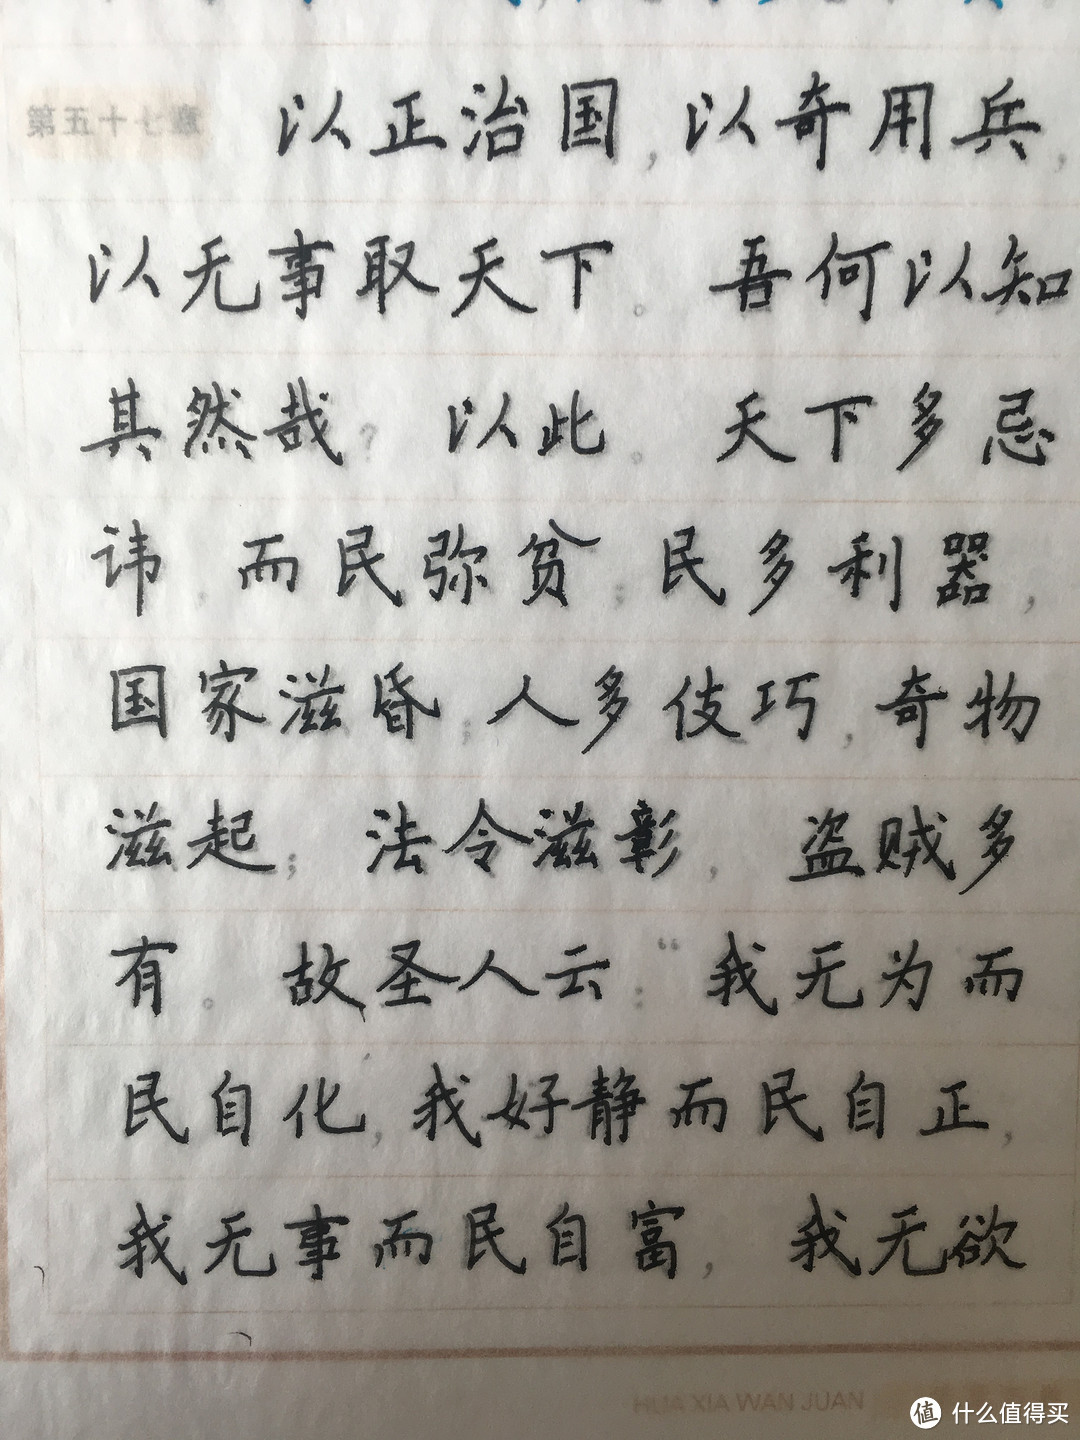 第五十七章 以正治国，以奇用兵，
以无事取天下。吾何以知
其然哉？以此。天下多忌
讳，而民弥贫；民多利器，
国家滋昏；人多伎巧，奇物
滋起；法令滋彰，盗贼多
有。故圣人云：“我无为而
民自化，我好静而民自正，
我无事而民自富，我无欲
HUA XIA WAN JUAN
值 什么值得买